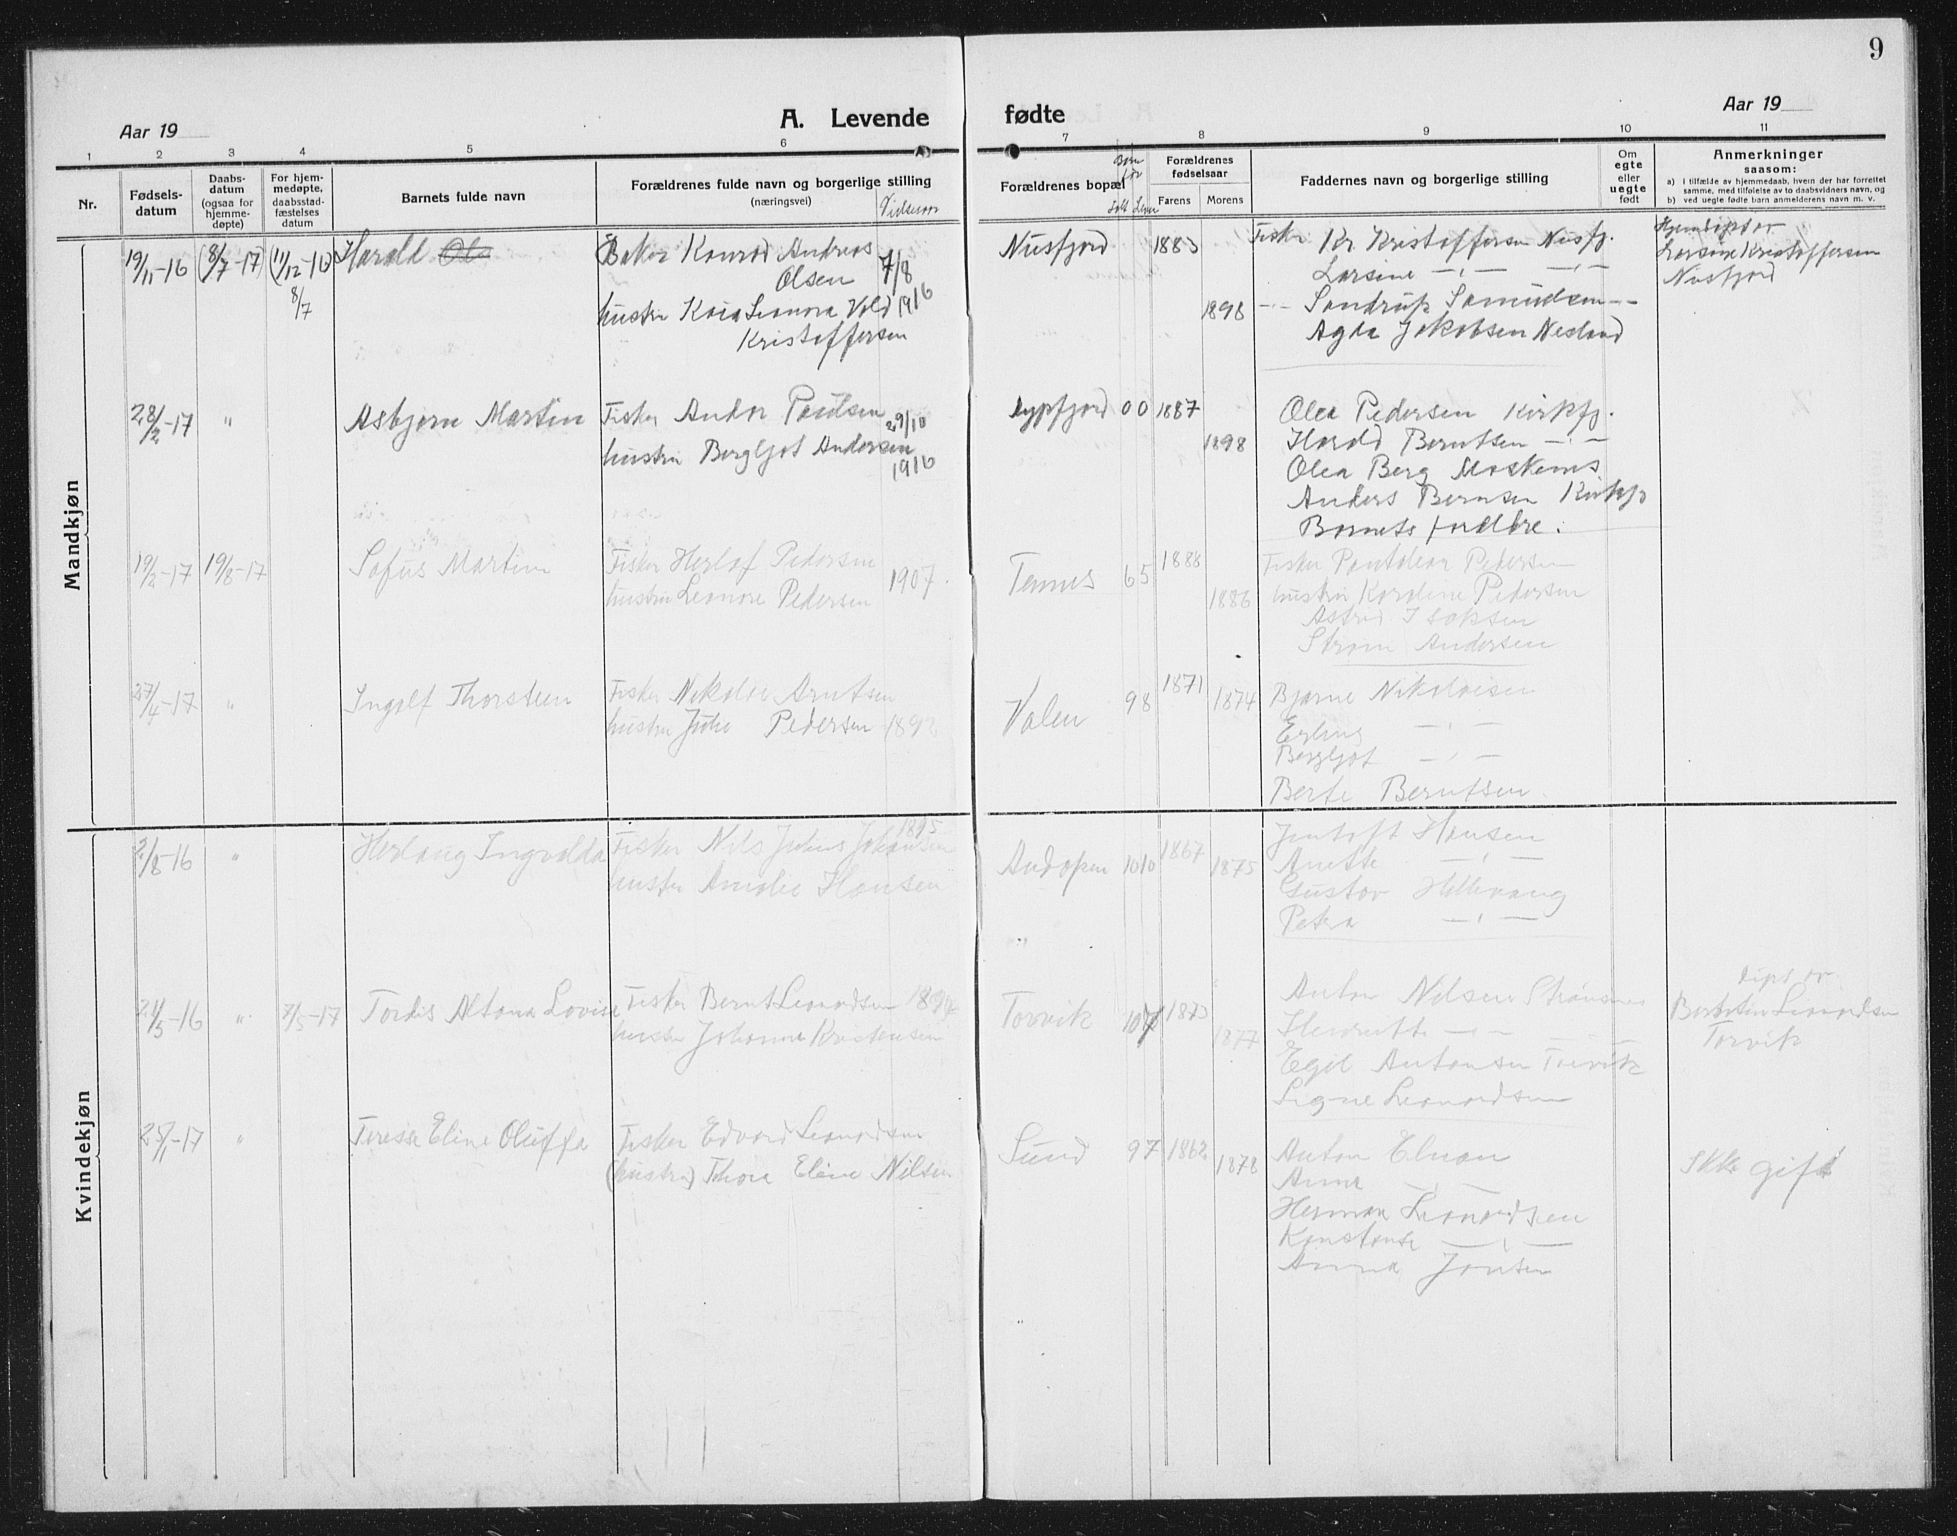 9
Aar 19
A. Levende
fødte
Aar 19
1 2 3 4 5 6 7 8 9 10 11
Nr.
Fødsels-
datum
Daabs-
datum
(ogsaa for
hjemme-
døpte)
For hjem-
medøpte,
daabsstad-
fæstelses
datum
Barnets fulde navn
Forældrenes fulde navn og borgerlige stilling
(næringsvei)
Vielsesaar
Forældrenes bopæl
Børn
før
født Lever
Forældrenes
fødselsaar
Farens Morens
Faddernes navn og borgerlige stilling
Om
egte
eller
uegte
født
Anmerkninger
saasom:
a) i tilfælde av hjemmedaab, hvem der har forrettet
samme, med tilføielse av to daabsvidners navn, og
b) ved uegte fødte barn anmelderens navn m. v.
Mandkjøn
19/11-16 (8/7-17) (11/12-16) Harald Ol
8/7
Baker Konrad Andreas
Olsen 7/8
hustru Kaia Leonora Vold 1916
Kristoffersen
Nusfjord 1883
1898
Fisker Kr Kristoffersen Nusfj.
Larsine -"- -"-
-"- Sandrup Samuelsen -"-
Agda Jakobsen Nesland
Hjemdøpt av
Larsine Kristoffersen
Nusfjord
28/2-17 " Asbjørn Martin
Fisker Andor Paulsen 29/10
hustru Bergljot Andersen
1916
00 1887
1898
Olea Pedersen Kirkfj.
Harald Berntsen -"-
Olea Berg Moskenes
Anders Bernsen Kirkfj
Barnets forældre.
19/2-17 19/8-17 Sofus Martin
Fisker Herlof Pedersen
hustru Leonore Pedersen 1907
Tennes 65 1888
1886
Fisker Pantaleon Pedersen
hustru Karoline Pedersen
Astrid Isaksen
Strøm Andersen
27/4-17 " Ingolf Thorsteen
Fisker Nikolai Arntsen
hustru Julie Pedersen 1892
Valen 98 1871 1874
Bjarne Nikolaisen
Erling -"-
Bergljot -"-
Berte Berntsen.
Kvindekjøn
2/8-16 " Herlaug Ingvalda
Fisker Nils Julius Johansen 1895
hustru Amalie Hansen
Andopen 1010 1867 1875
Jentoft Hansen
Anette -"-
Gustav Hellevang
Petra -"-
21/5-16 " 7/5-17 Tordis Altona Lovise
Fisker Bernt Leonardsen 1894
hustru Johanna Kristensen
Torvik 107 1873
1877
Anton Nilsen Strømsnes
Henriette -"-
Egil Antonsen Torvik
Signe Leonardsen
døpt av
Leonardsen
Torvik
25/1-17 " Teresse Eline Oluffa
Fisker Edvard Leonardsen
(hustru) Thora Eline Nilsen
Sund 97 1862
1878
Anton Elvan
Anna -"-
Herman Leonardsen
Konstanse -"-
Anna Jensen
Ikke gift